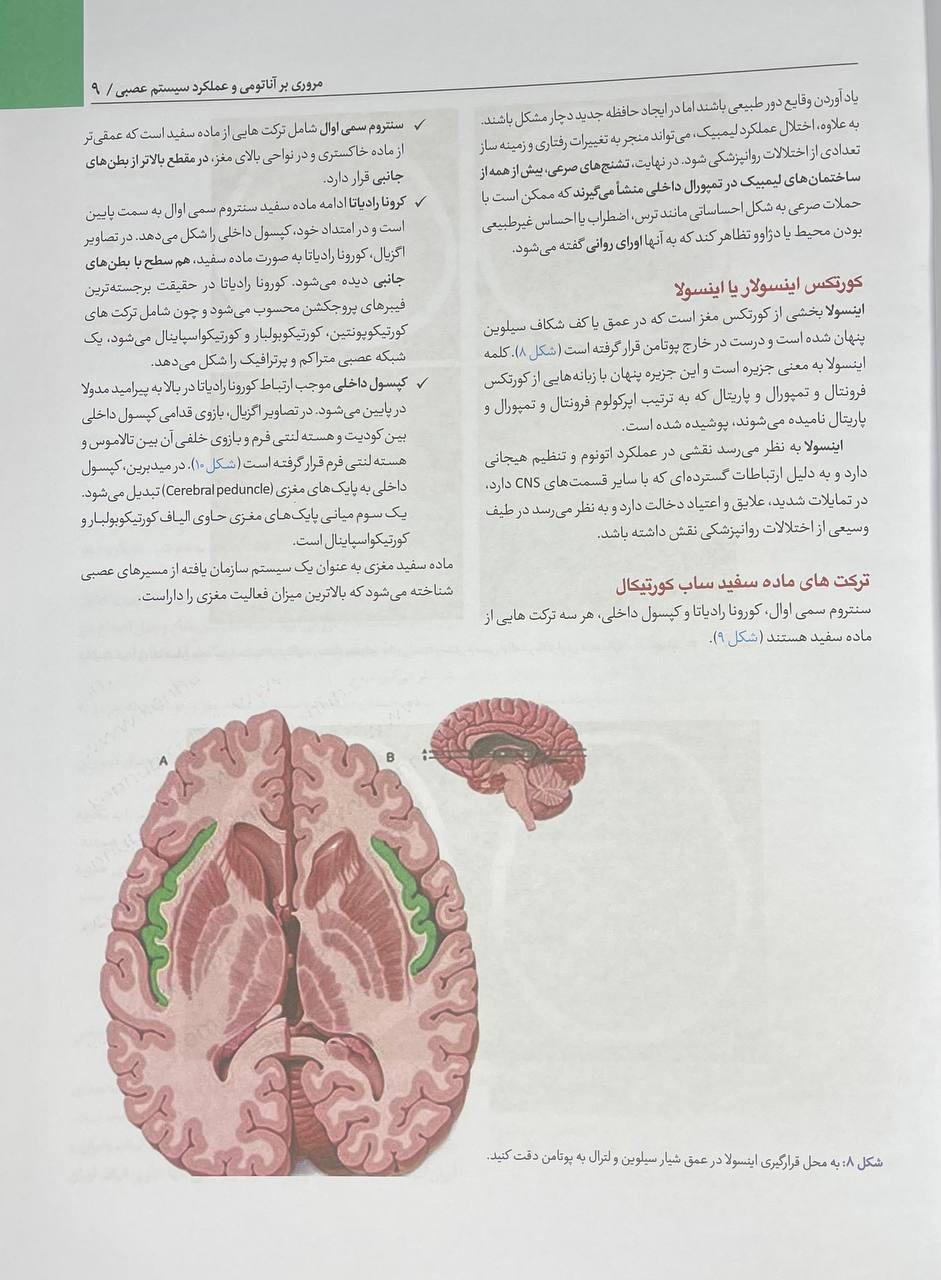 مروری بر آناتومی و عملکرد سیستم عصبی / ۹
یاد آوردن وقایع دور طبیعی باشند اما در ایجاد حافظه جدید دچار مشکل باشند.
به علاوه، اختلال عملکرد لیمبیک، می‌تواند منجر به تغییرات رفتاری و زمینه ساز
تعدادی از اختلالات روانپزشکی شود. در نهایت، تشنج‌های صرعی، بیش از همه از
ساختمان‌های لیمبیک در تمپورال داخلی منشأ می‌گیرند که ممکن است با
حملات صرعی به شکل احساساتی مانند ترس، اضطراب یا احساس غیرطبیعی
بودن محیط یا دژاوو تظاهر کند که به آنها اورای روانی گفته می‌شود.
کورتکس اینسولار یا اینسولا
اینسولا بخشی از کورتکس مغز است که در عمق یا کف شکاف سیلوین
پنهان شده است و درست در خارج پوتامن قرار گرفته است (شکل ۸). کلمه
اینسولا به معنی جزیره است و این جزیره پنهان با زبانه‌هایی از کورتکس
فرونتال و تمپورال و پاریتال که به ترتیب اپرکولوم فرونتال و تمپورال و
پاریتال نامیده می‌شوند، پوشیده شده است.
اینسولا به نظر می‌رسد نقشی در عملکرد اتونوم و تنظیم هیجانی
دارد و به دلیل ارتباطات گسترده‌ای که با سایر قسمت‌های CNS دارد،
در تمایلات شدید، علایق و اعتیاد دخالت دارد و به نظر می‌رسد در طیف
وسیعی از اختلالات روانپزشکی نقش داشته باشد.
ترکت های ماده سفید ساب کورتیکال
سنتروم سمی اوال، کورونا رادیاتا و کپسول داخلی، هر سه ترکت هایی از
ماده سفید هستند (شکل ۹).
✓ سنتروم سمی اوال شامل ترکت هایی از ماده سفید است که عمقی‌تر
از ماده خاکستری و در نواحی بالای مغز، در مقطع بالاتر از بطن‌های
جانبی قرار دارد.
✓ کرونا رادیاتا ادامه ماده سفید سنتروم سمی اوال به سمت پایین
است و در امتداد خود، کپسول داخلی را شکل می‌دهد. در تصاویر
اگزیال، کورونا رادیاتا به صورت ماده سفید، هم سطح با بطن‌های
جانبی دیده می‌شود. کورونا رادیاتا در حقیقت برجسته‌ترین
فیبرهای پروجکشن محسوب می‌شود و چون شامل ترکت های
کورتیکوپونتین، کورتیکوبولبار و کورتیکواسپاینال می‌شود، یک
شبکه عصبی متراکم و پرترافیک را شکل می‌دهد.
✓ کپسول داخلی موجب ارتباط کورونا رادیاتا در بالا به پیرامید مدولا
در پایین می‌شود. در تصاویر اگزیال، بازوی قدامی کپسول داخلی
بین کودیت و هسته لنتی فرم و بازوی خلفی آن بین تالاموس و
هسته لنتی فرم قرار گرفته است (شکل ۱۰). در میدبرین، کپسول
داخلی به پایک‌های مغزی (Cerebral peduncle) تبدیل می‌شود.
یک سوم میانی پایک‌های مغزی حاوی الیاف کورتیکوبولبار و
کورتیکواسپاینال است.
ماده سفید مغزی به عنوان یک سیستم سازمان یافته از مسیرهای عصبی
شناخته می‌شود که بالاترین میزان فعالیت مغزی را داراست.
A
B
شکل ۸: به محل قرارگیری اینسولا در عمق شیار سیلوین و لترال به پوتامن دقت کنید.